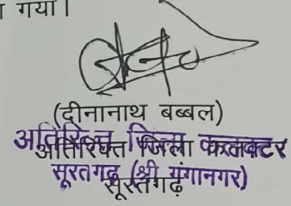 गया।
(दीनानाथ बब्बल)
अतिरिक्त जिला कलक्टर
अतिरिक्त जिला कलक्टर
सूरतगढ़ (श्री गंगानगर)
सूरतगढ़